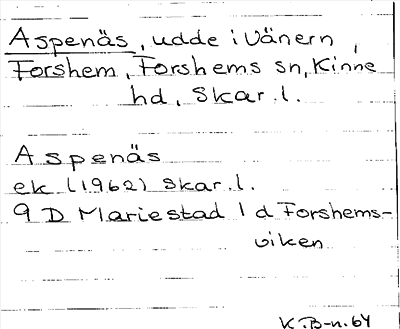 Aspenäs, udde i Vänern,
Forshem, Forshems sn, Kinne
hd, Skar. l.
Aspenäs
ek (1962) Skar. l.
9 D Mariestad 1 d Forshems-
viken
K.B-n. 64